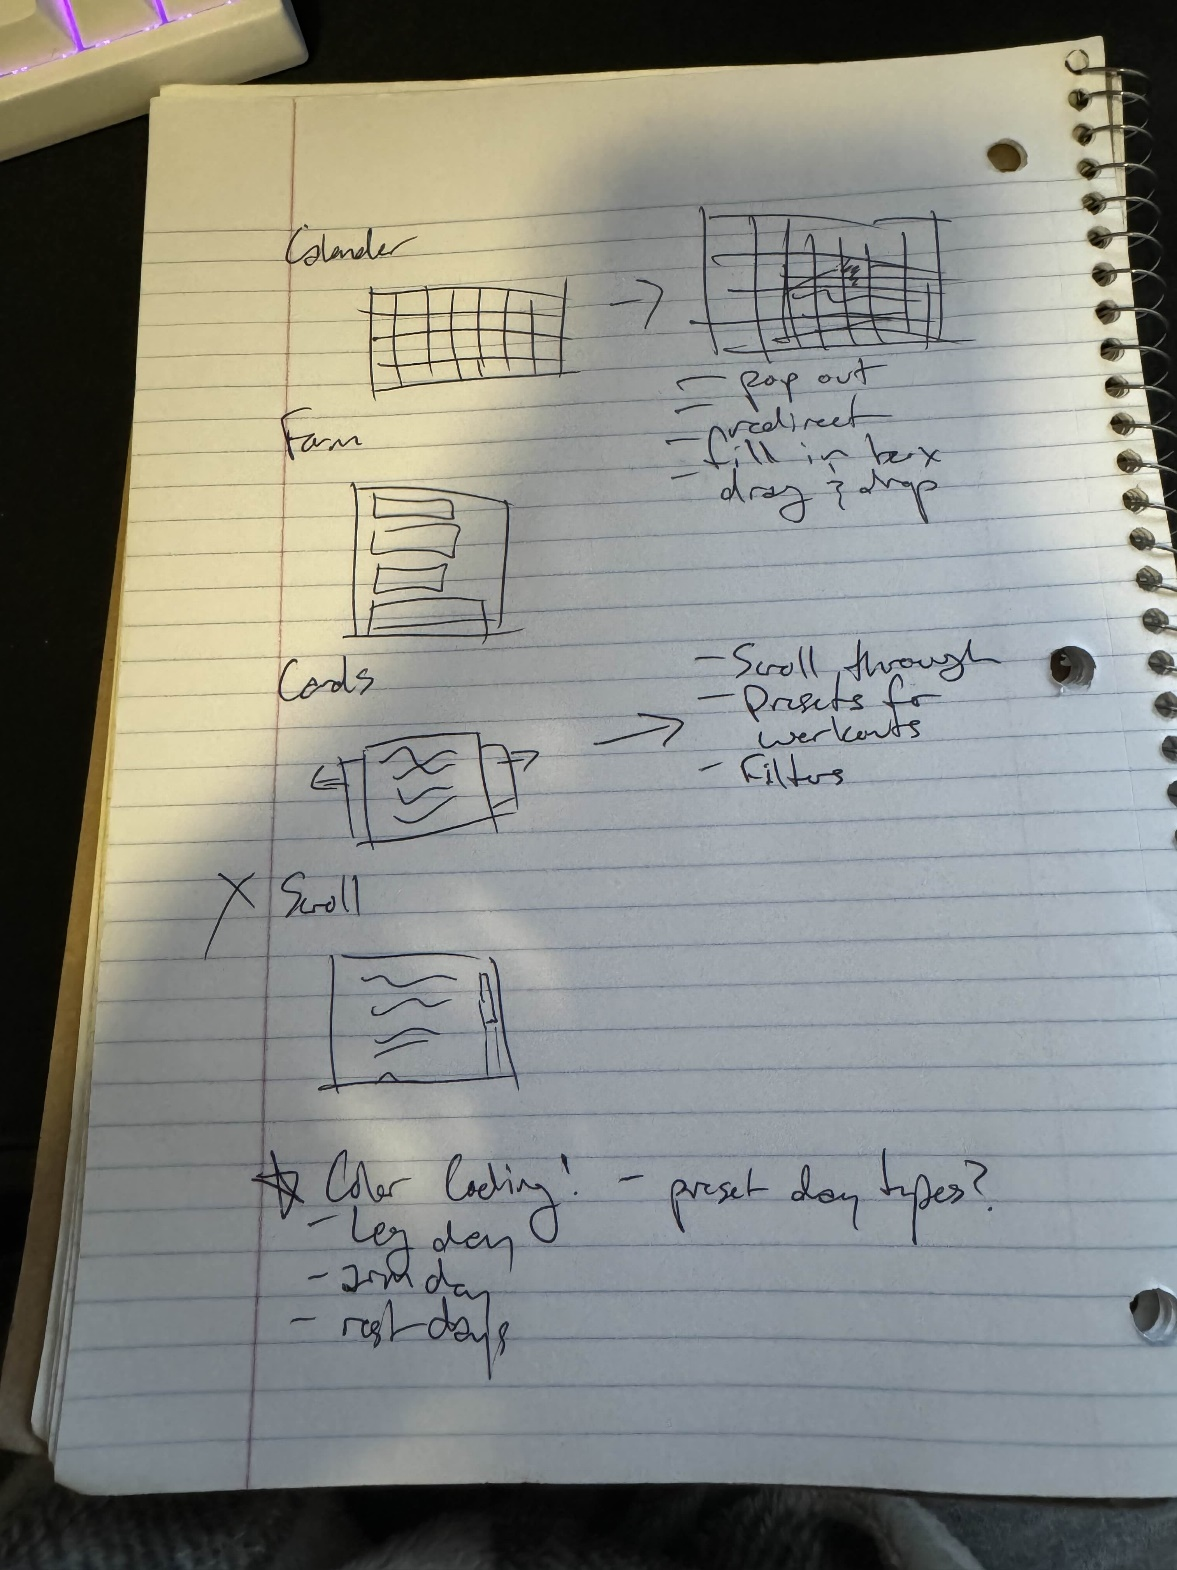 Calander
- pop out
- redirect
- fill in box
- drag & drop
Form
Cards
- Scroll through
- Presets for
workouts
- Filters
X Scroll
☆ Color Coding! - preset day types?
- leg day
- arm day
- rest days